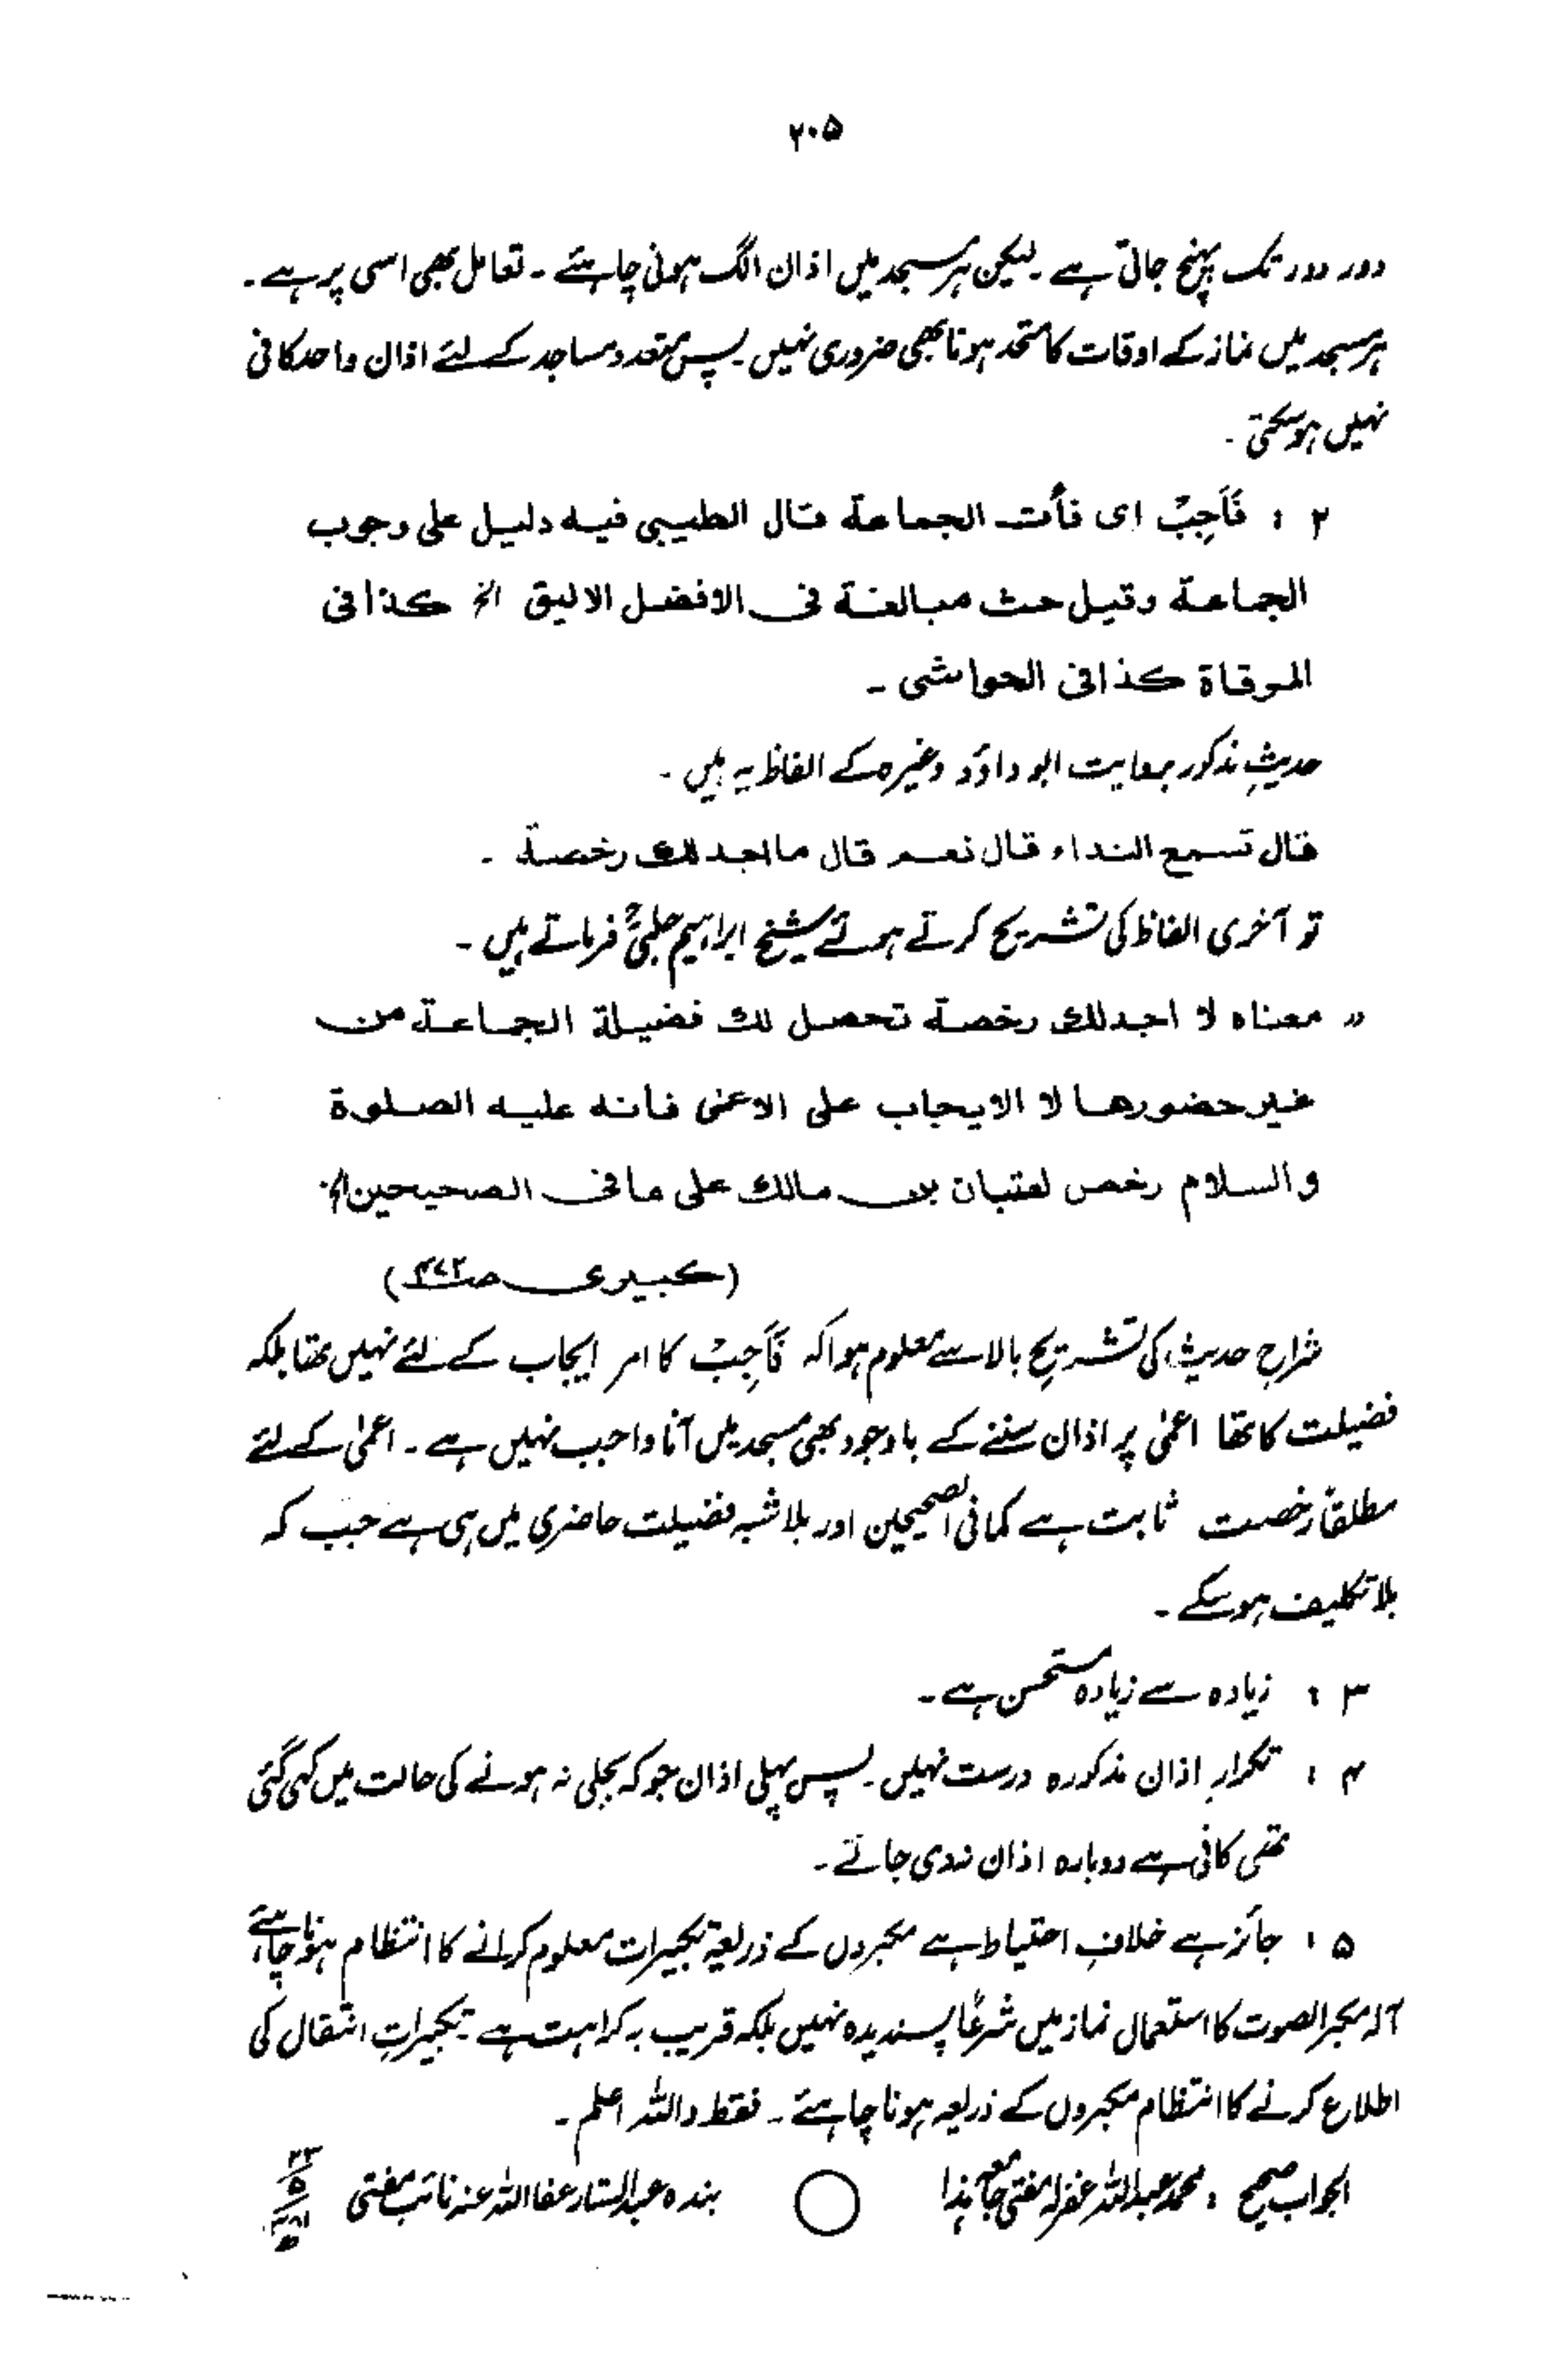 ۲۰۵
دور دور تک پہنچ جاتی ہے ۔ لیکن ہر مسجد میں اذان الگ ہونی چاہئے ۔ تعامل بھی اسی پر ہے ۔
ہر مسجد میں نماز کے اوقات کا متحد ہونا بھی ضروری نہیں ۔ پس متعدد مساجد کے لئے اذان واحد کافی
نہیں ہو سکتی ۔
۲ : فَأَجِبْ ای فأت الجماعة قال الطیبی فیه دلیل علی وجوب
الجماعة وقیل حث مبالغة فی الافضل الالیق الخ کذا فی
المرقاة کذا فی الحواشی ۔
حدیثِ مذکور بروایت ابو داؤد وغیرہ کے الفاظ یہ ہیں ۔
قال تسمع النداء قال نعم قال ما اجد لك رخصة ۔
تو آخری الفاظ کی تشریح کرتے ہوئے شیخ ابراہیم حلبیؒ فرماتے ہیں ۔
" معناه لا اجد لك رخصة تحصل لك فضیلة الجماعة من
غیر حضورها لا الایجاب علی الاعمی فانه علیه الصلوة
والسلام رخص لعتبان بن مالك علی ما فی الصحیحین الخ
(کبیری ص۴۷۲)
شراحِ حدیث کی تشریحِ بالا سے معلوم ہوا کہ فَأَجِبْ کا امر ایجاب کے لئے نہیں تھا بلکہ
فضیلت کا تھا اعمٰی پر اذان سننے کے باوجود بھی مسجد میں آنا واجب نہیں ہے ۔ اعمٰی کے لئے
مطلقاً رخصت ثابت ہے کما فی الصحیحین اور بلا شبہ فضیلت حاضری میں ہی ہے جب کہ
بلا تکلیف ہو سکے ۔
۳ : زیادہ سے زیادہ مستحسن ہے ۔
۴ : تکرارِ اذان مذکورہ درست نہیں ۔ پس پہلی اذان جو کہ بجلی نہ ہونے کی حالت میں کہی گئی
تھی کافی ہے دوبارہ اذان نہ دی جائے ۔
۵ : جائز ہے خلافِ احتیاط ہے مکبروں کے ذریعہ تکبیرات معلوم کرانے کا انتظام ہونا چاہئے
آلہ مکبر الصوت کا استعمال نماز میں شرعًا پسندیدہ نہیں بلکہ قریب بہ کراہت ہے تکبیراتِ انتقال کی
اطلاع کرنے کا انتظام مکبروں کے ذریعہ ہونا چاہئے ۔ فقط واللہ اعلم ۔
الجواب صحیح : محمد عبداللہ غفرلہ مفتی جامعہ ہذا بندہ عبدالستار عفا اللہ عنہ نائب مفتی